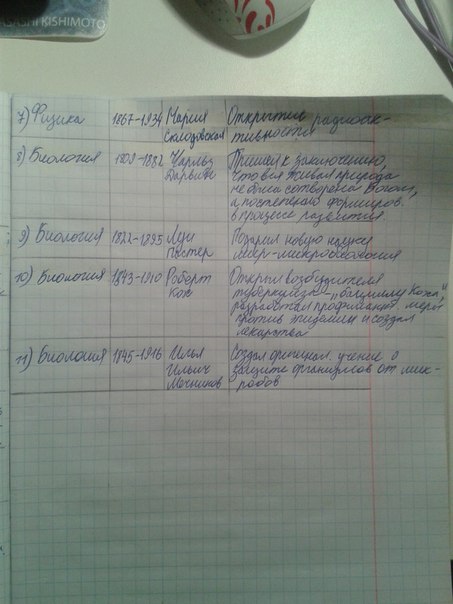 ASASHI KISHIMOTO
7) Физика 1867-1934 Мария Открытие радиоак-
Склодовская тивности
8) Биология 1809-1882 Чарльз Пришел к заключению,
Дарвин что вся живая природа
не была сотворена Богом,
а постепенно формиров.
в процессе развития.
9) Биология 1822-1895 Луи Подарил новую науку
Пастер миру-микробиология
10) Биология 1843-1910 Роберт Открыл возбудителя
Кох туберкулёза-„бациллу Коха",
разработал профилакт. меры
против эпидемии и создал
лекарства
11) Биология 1845-1916 Илья Создал оригинал. учение о
Ильич защите организмов от мик-
Мечников робов